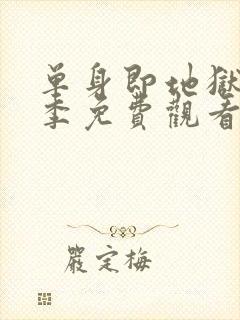 单身即地獄
季免費觀看
嚴定梅